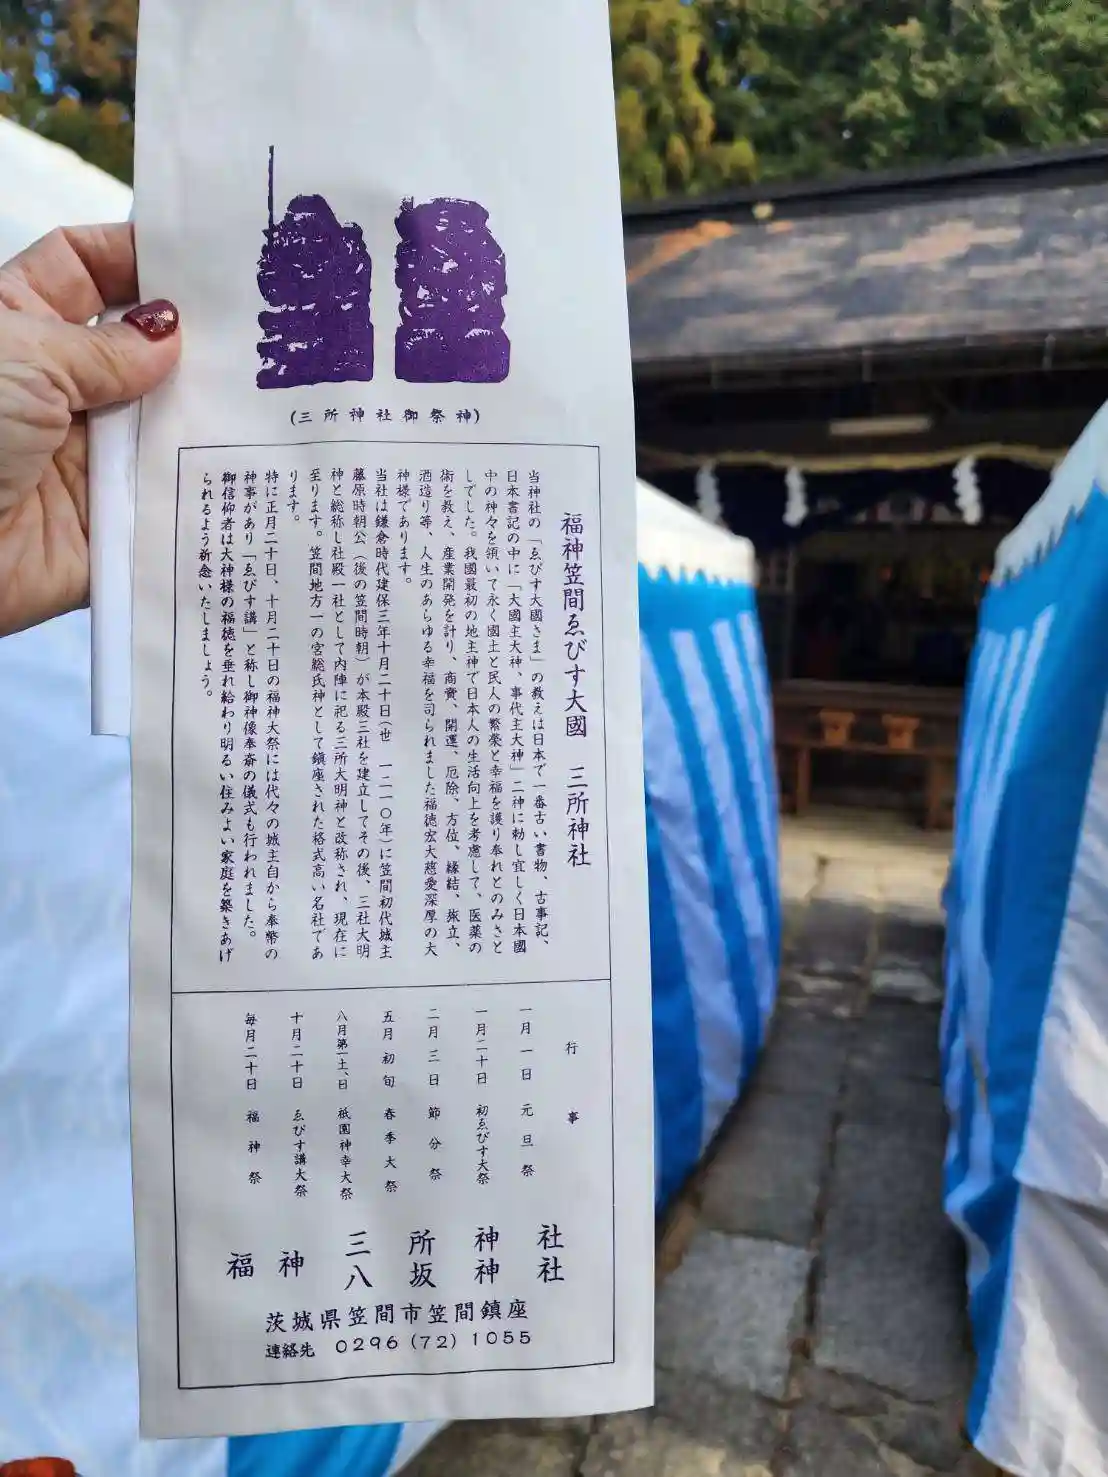 (三所神社御祭神)
福神笠間ゑびす大國　三所神社
当神社の「ゑびす大國さま」の教えは日本で一番古い書物、古事記、
日本書記の中に「大國主大神、事代主大神」二神に勅し宜しく日本國
中の神々を領いて永く國土と民人の繁榮と幸福を護り奉れとのみさと
しでした。我國最初の地主神で日本人の生活向上を考慮して、医薬の
術を教え、産業開発を計り、商賣、開運、厄除、方位、縁結、旅立、
酒造り等、人生のあらゆる幸福を司られました福徳宏大慈愛深厚の大
神様であります。
当社は鎌倉時代建保三年十月二十日(世　一二一〇年)に笠間初代城主
藤原時朝公(後の笠間時朝)が本殿三社を建立してその後、三社大明
神と総称し社殿一社として内陣に祀る三所大明神と改称され、現在に
至ります。笠間地方一の宮総氏神として鎮座された格式高い名社であ
ります。
特に正月二十日、十月二十日の福神大祭には代々の城主自から奉幣の
神事があり「ゑびす講」と称し御神像奉斎の儀式も行われました。
御信仰者は大神様の福徳を垂れ給わり明るい住みよい家庭を築きあげ
られるよう祈念いたしましょう。
行事
一月一日　元旦祭
一月二十日　初ゑびす大祭
二月三日　節分祭
五月初旬　春季大祭
八月第一土、日　祇園神幸大祭
十月二十日　ゑびす講大祭
毎月二十日　福神祭
福神　三所神社
八坂神社
茨城県笠間市笠間鎮座
連絡先　0296(72)1055